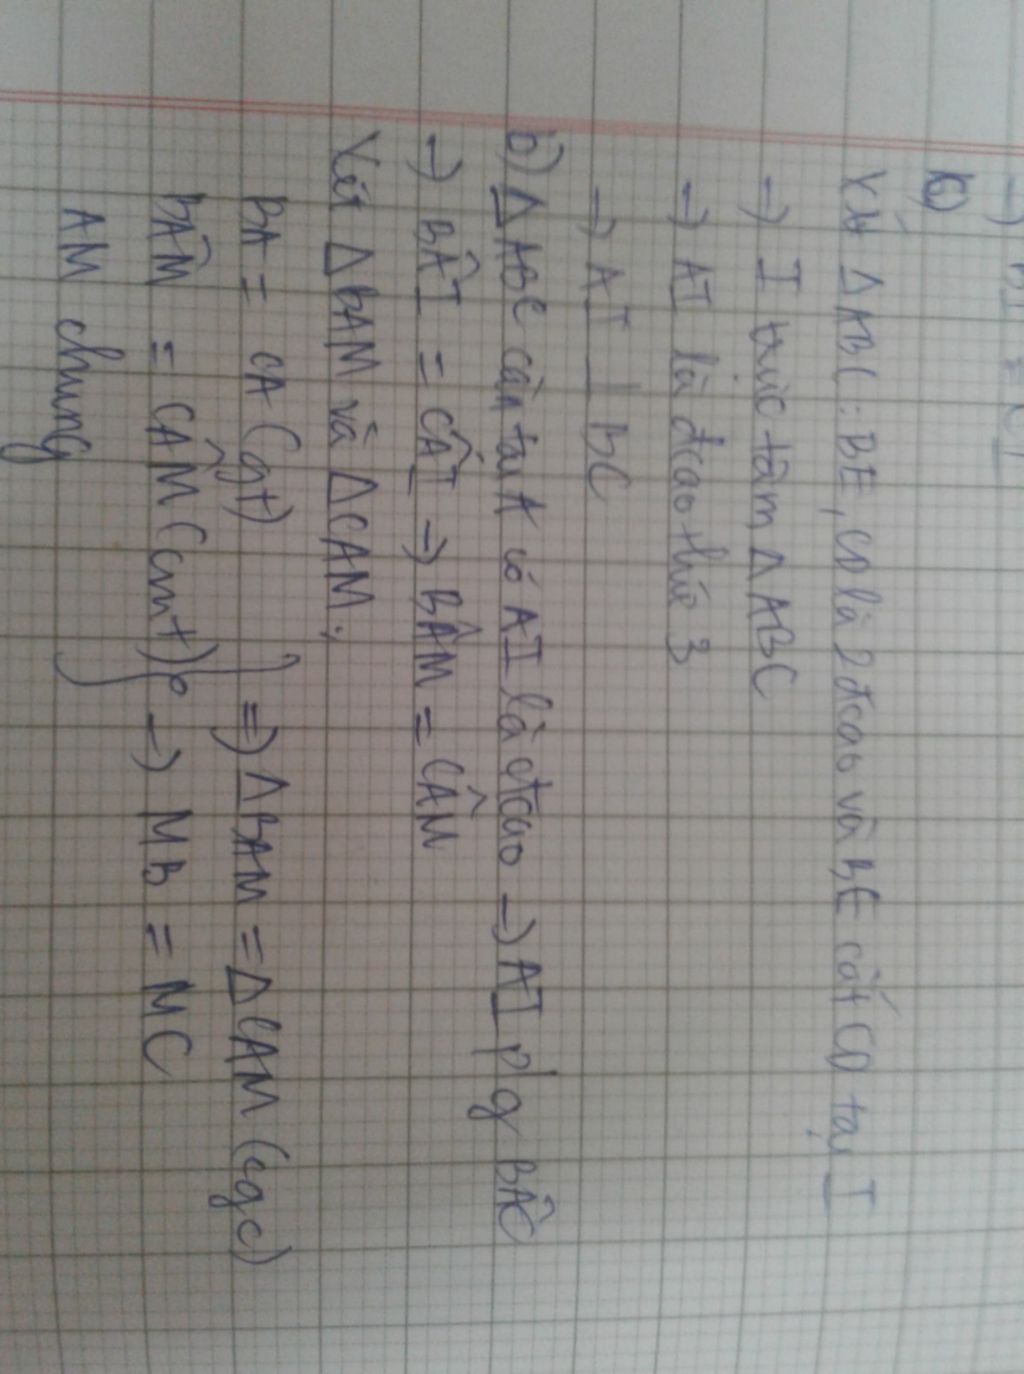 →) BI = CI
b)
Xét Δ ABC: BE, CD là 2 đcao và BE cắt CD tại I
→) I trực tâm Δ ABC
→) AI là đcao thứ 3
→) AI ⊥ BC
b) Δ ABC cân tại A có AI là đcao →) AI p/g BÂC
→) BÂI = CÂI →) BÂM = CÂM
Xét Δ BAM và Δ CAM:
BA = CA (gt) } =) Δ BAM = Δ CAM (cgc)
BÂM = CÂM (cmt) →) MB = MC
AM chung